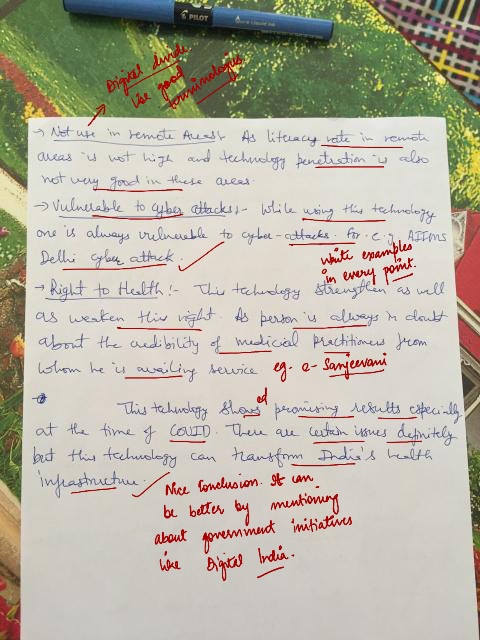 PILOT
Liquid Ink
Digital divide
Use good
terminologies
→ Not use in remote Areas:- As literacy rate in remote
areas is not high and technology penetration is also
not very good in these areas.
→ Vulnerable to cyber attacks:- While using this technology
one is always vulnerable to cyber-attacks. For e.g AIIMS
Delhi cyber attack. ✓
write examples
in every point.
→ Right to Health:- This technology strengthen as well
as weaken this right. As person is always in doubt
about the credibility of medicial Practitioners from
whom he is availing service eg. e-Sanjeevani
ed
This technology shows promising results especially
at the time of COVID. There are certain issues definitely
but this technology can transform India's health
infrastructure. ✓
Nice Conclusion. It can
be better by mentioning
about government initiatives
like Digital India.